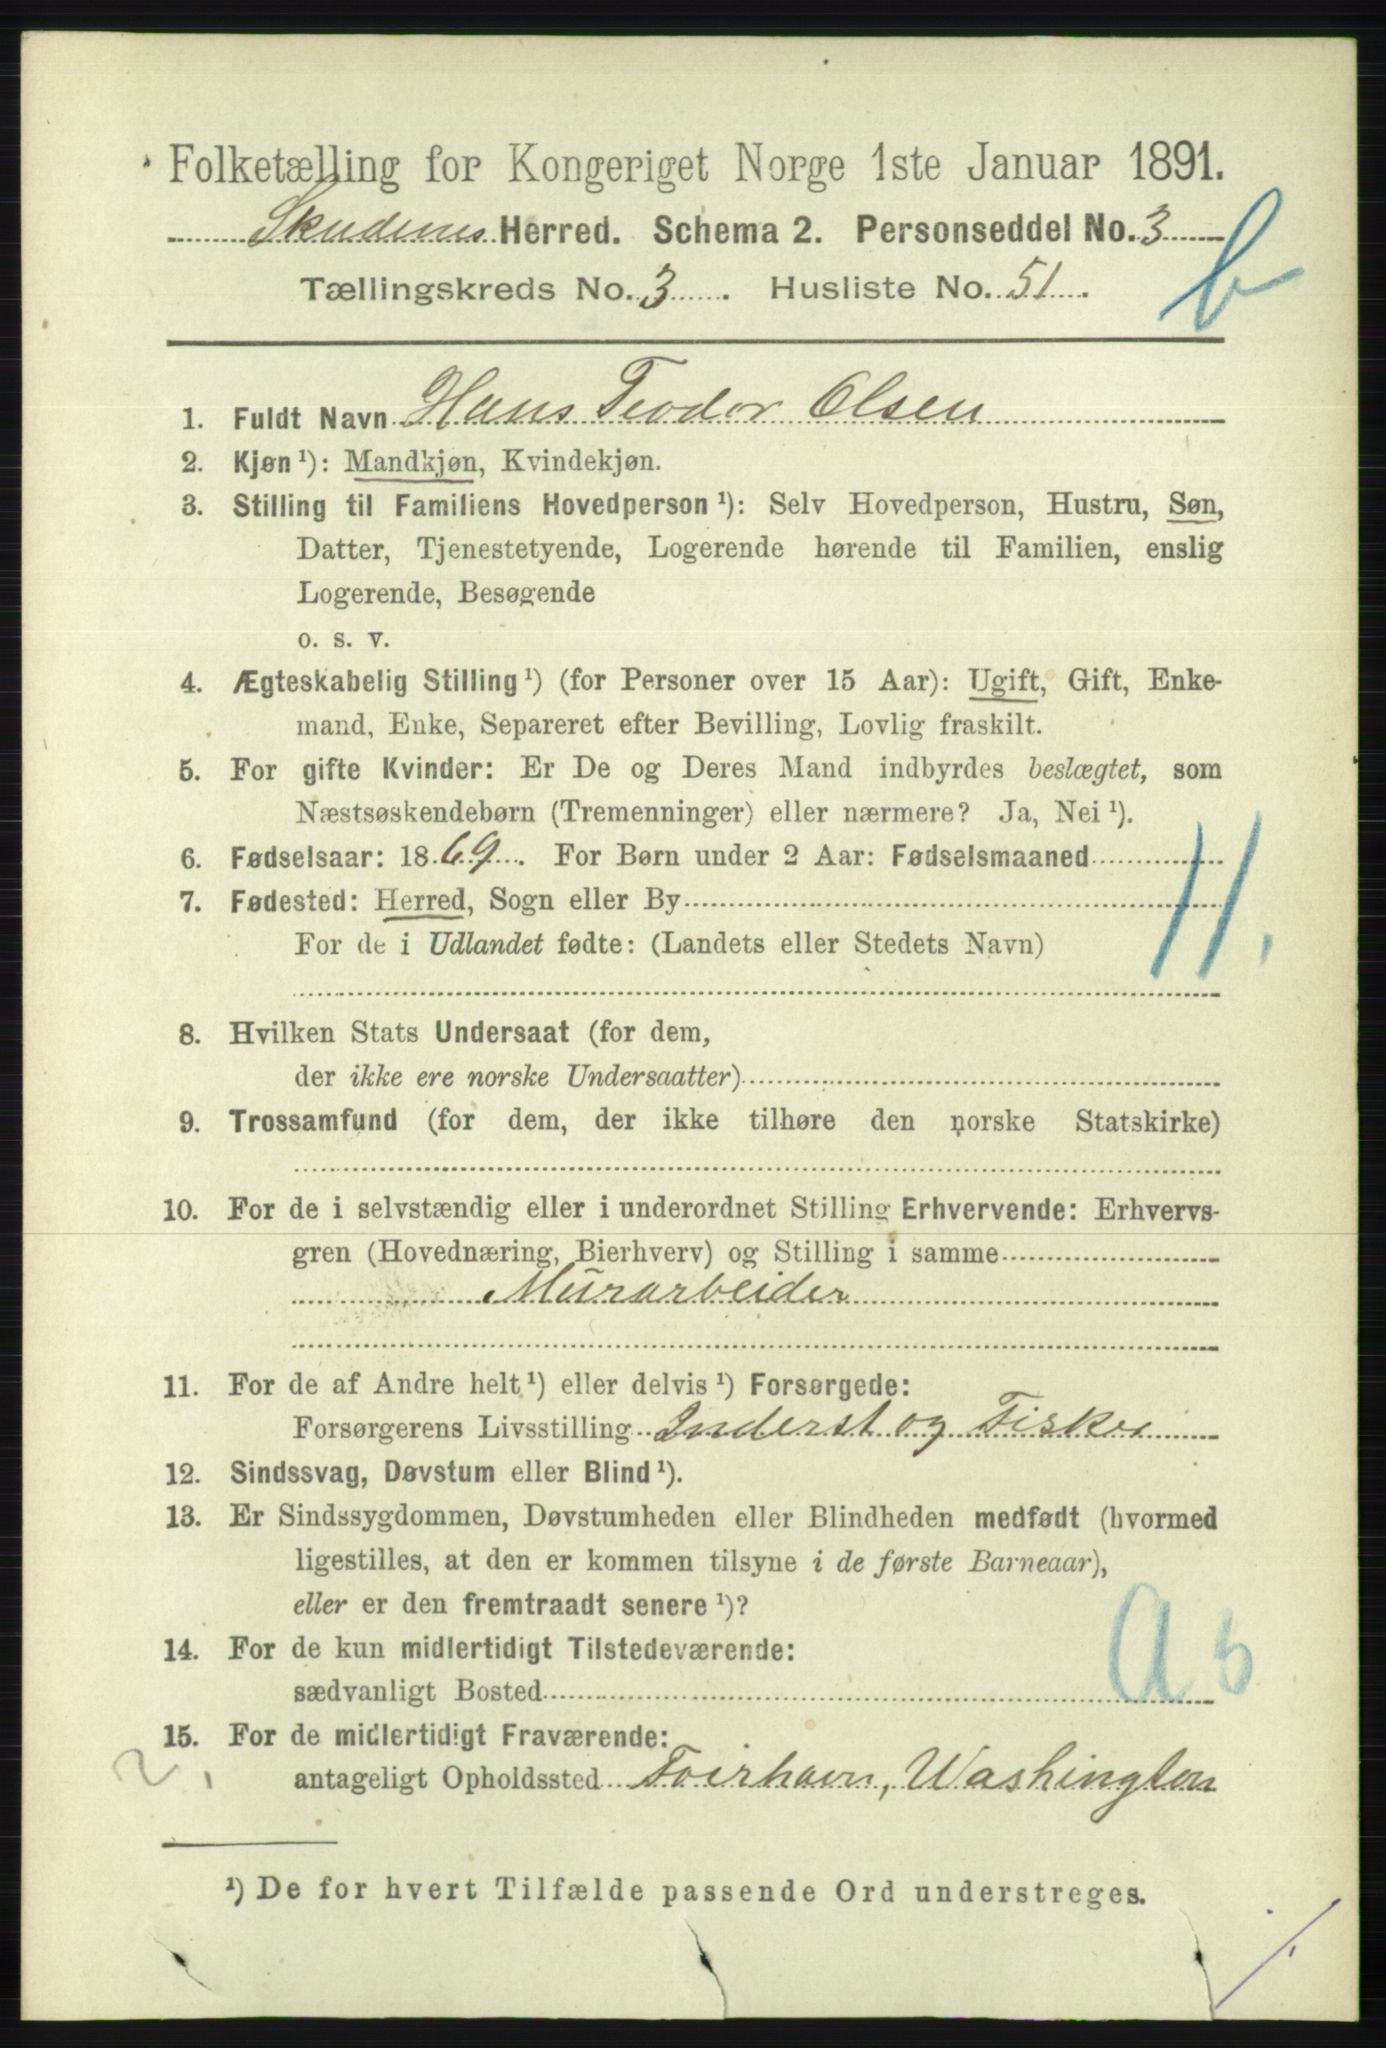 Folketælling for Kongeriget Norge 1ste Januar 1891.
Skudenes Herred. Schema 2. Personseddel No. 3
b
Tællingskreds No. 3. Husliste No. 51.
1. Fuldt Navn Hans Teodor Olsen
2. Kjøn ¹): Mandkjøn, Kvindekjøn.
3. Stilling til Familiens Hovedperson ¹): Selv Hovedperson, Hustru, Søn,
Datter, Tjenestetyende, Logerende hørende til Familien, enslig
Logerende, Besøgende
o. s. v.
4. Ægteskabelig Stilling ¹) (for Personer over 15 Aar): Ugift, Gift, Enke-
mand, Enke, Separeret efter Bevilling, Lovlig fraskilt.
5. For gifte Kvinder: Er De og Deres Mand indbyrdes beslægtet, som
Næstsøskendebørn (Tremenninger) eller nærmere? Ja, Nei ¹).
6. Fødselsaar: 1869. For Børn under 2 Aar: Fødselsmaaned
7. Fødested: Herred, Sogn eller By
11.
For de i Udlandet fødte: (Landets eller Stedets Navn)
8. Hvilken Stats Undersaat (for dem,
der ikke ere norske Undersaatter)
9. Trossamfund (for dem, der ikke tilhøre den norske Statskirke)
10. For de i selvstændig eller i underordnet Stilling Erhvervende: Erhvervs-
gren (Hovednæring, Bierhverv) og Stilling i samme
Murarbeider
11. For de af Andre helt ¹) eller delvis ¹) Forsørgede:
Forsørgerens Livsstilling Inderst og Fisker
12. Sindssvag, Døvstum eller Blind ¹).
13. Er Sindssygdommen, Døvstumheden eller Blindheden medfødt (hvormed
ligestilles, at den er kommen tilsyne i de første Barneaar),
eller er den fremtraadt senere ¹)?
14. For de kun midlertidigt Tilstedeværende:
sædvanligt Bosted
a 5
15. For de midlertidigt Fraværende:
2.
antageligt Opholdssted Foirhavn, Washington
¹) De for hvert Tilfælde passende Ord understreges.